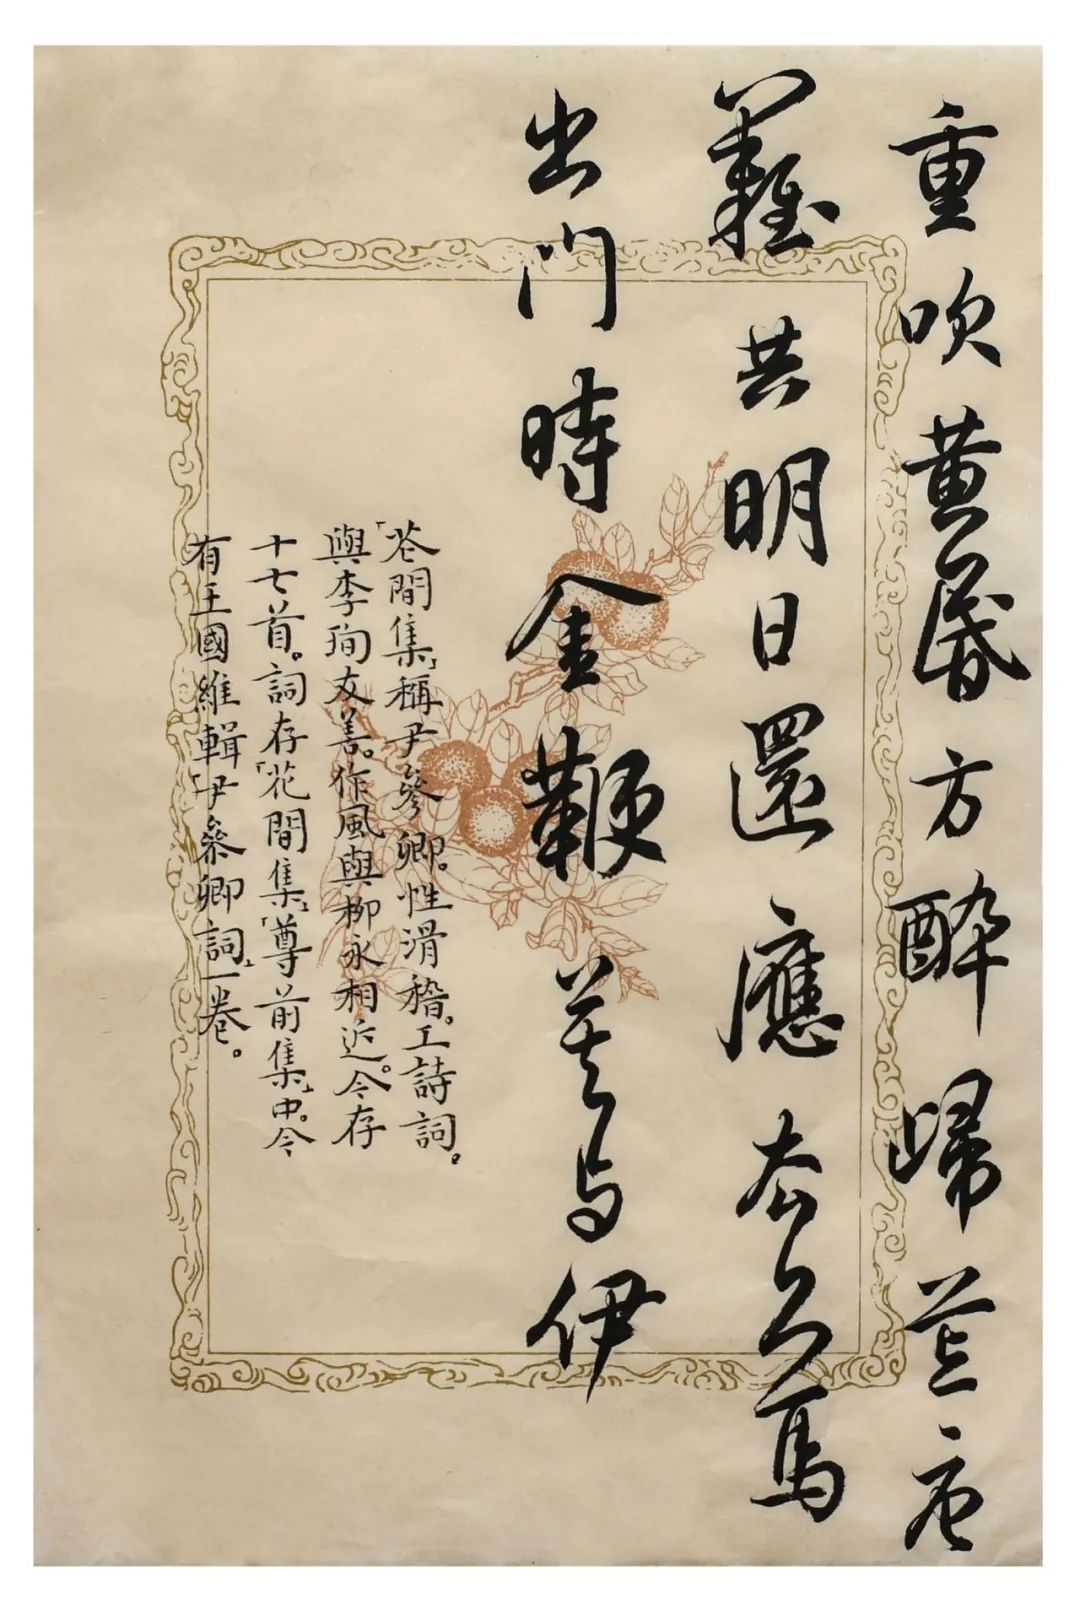 重吹黄昬方醉歸荒唐
難共明日還應去上馬
出門時金鞭莫与伊
「花間集」稱尹參卿。性滑稽。工詩詞。
與李珣友善。作風與柳永相近。今存
十七首。詞存「花間集」「尊前集」中。今
有王國維輯「尹參卿詞」一卷。